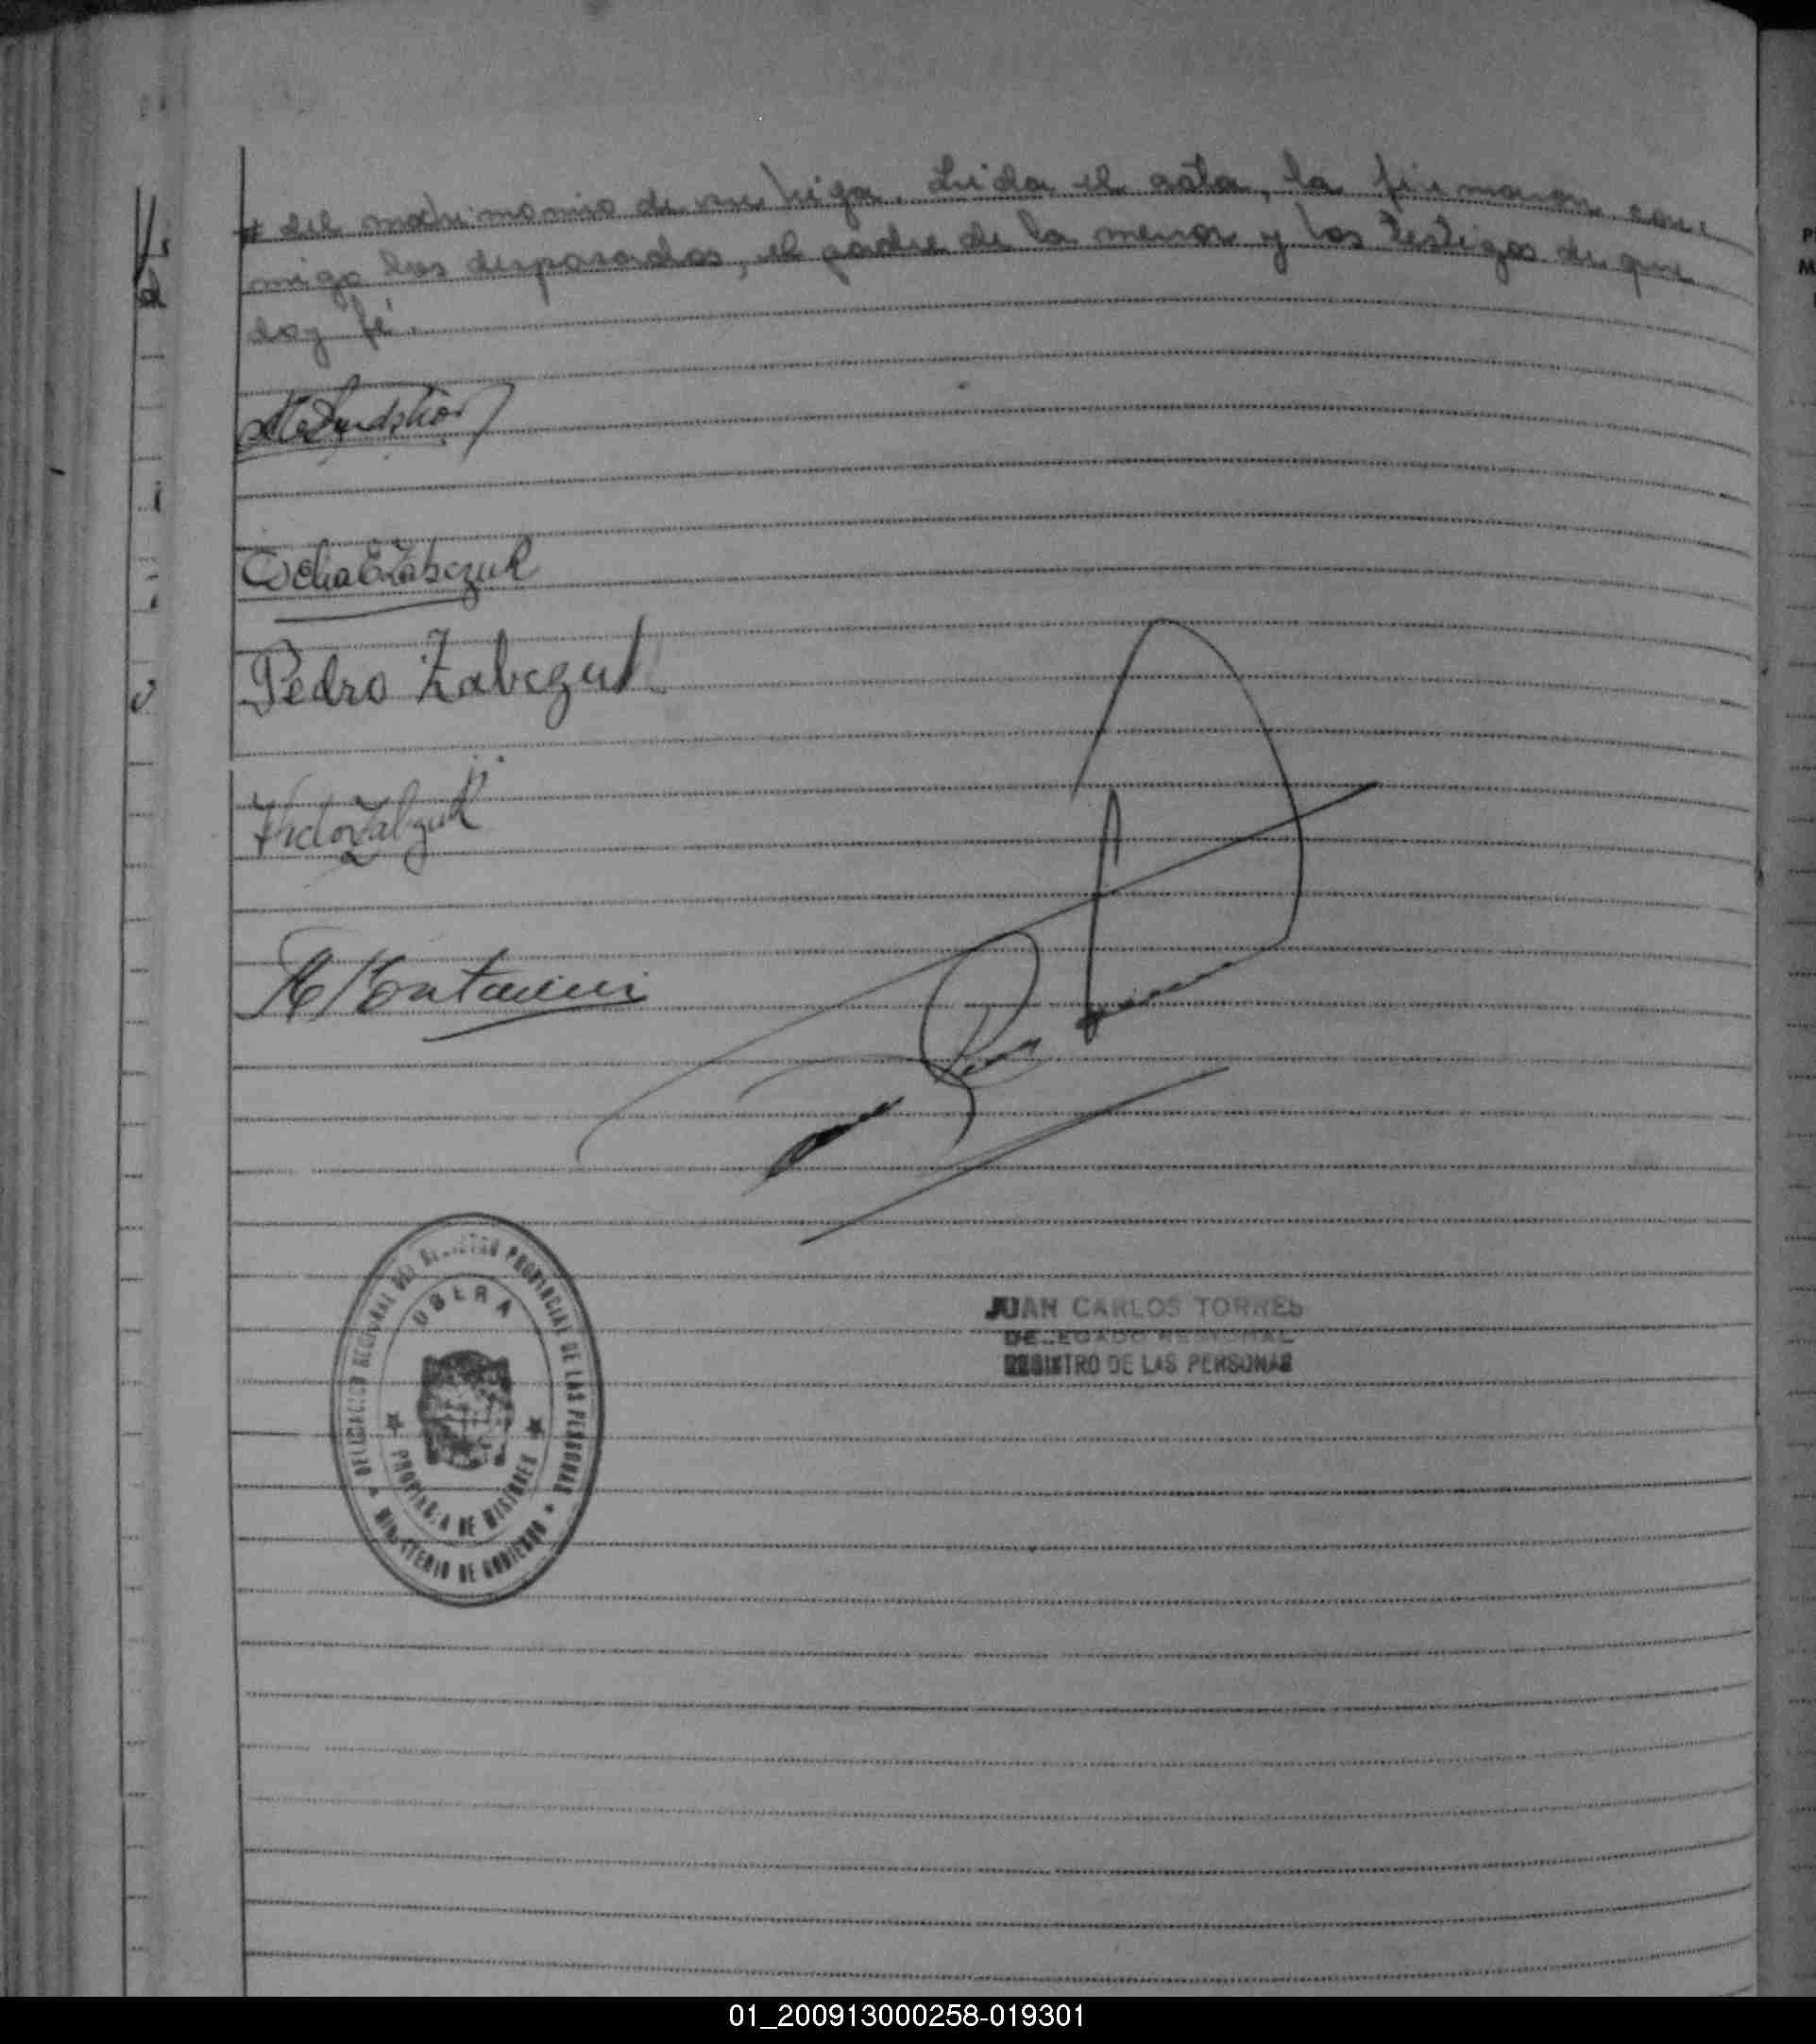 # del matrimonio de su hija. Leida el acta, la firmaron con
migo los desposados, el padre de la menor y los testigos de que
doy fé.
Delia E Zabczuk
Pedro Zabczuk
Victor Zabczuk
DELEGACION REGIONAL DEL REGISTRO PROVINCIAL DE LAS PERSONAS
OBERA
PROVINCIA DE MISIONES
MINISTERIO DE GOBIERNO
JUAN CARLOS TORRES
DELEGADO REGIONAL
REGISTRO DE LAS PERSONAS
01_200913000258-019301